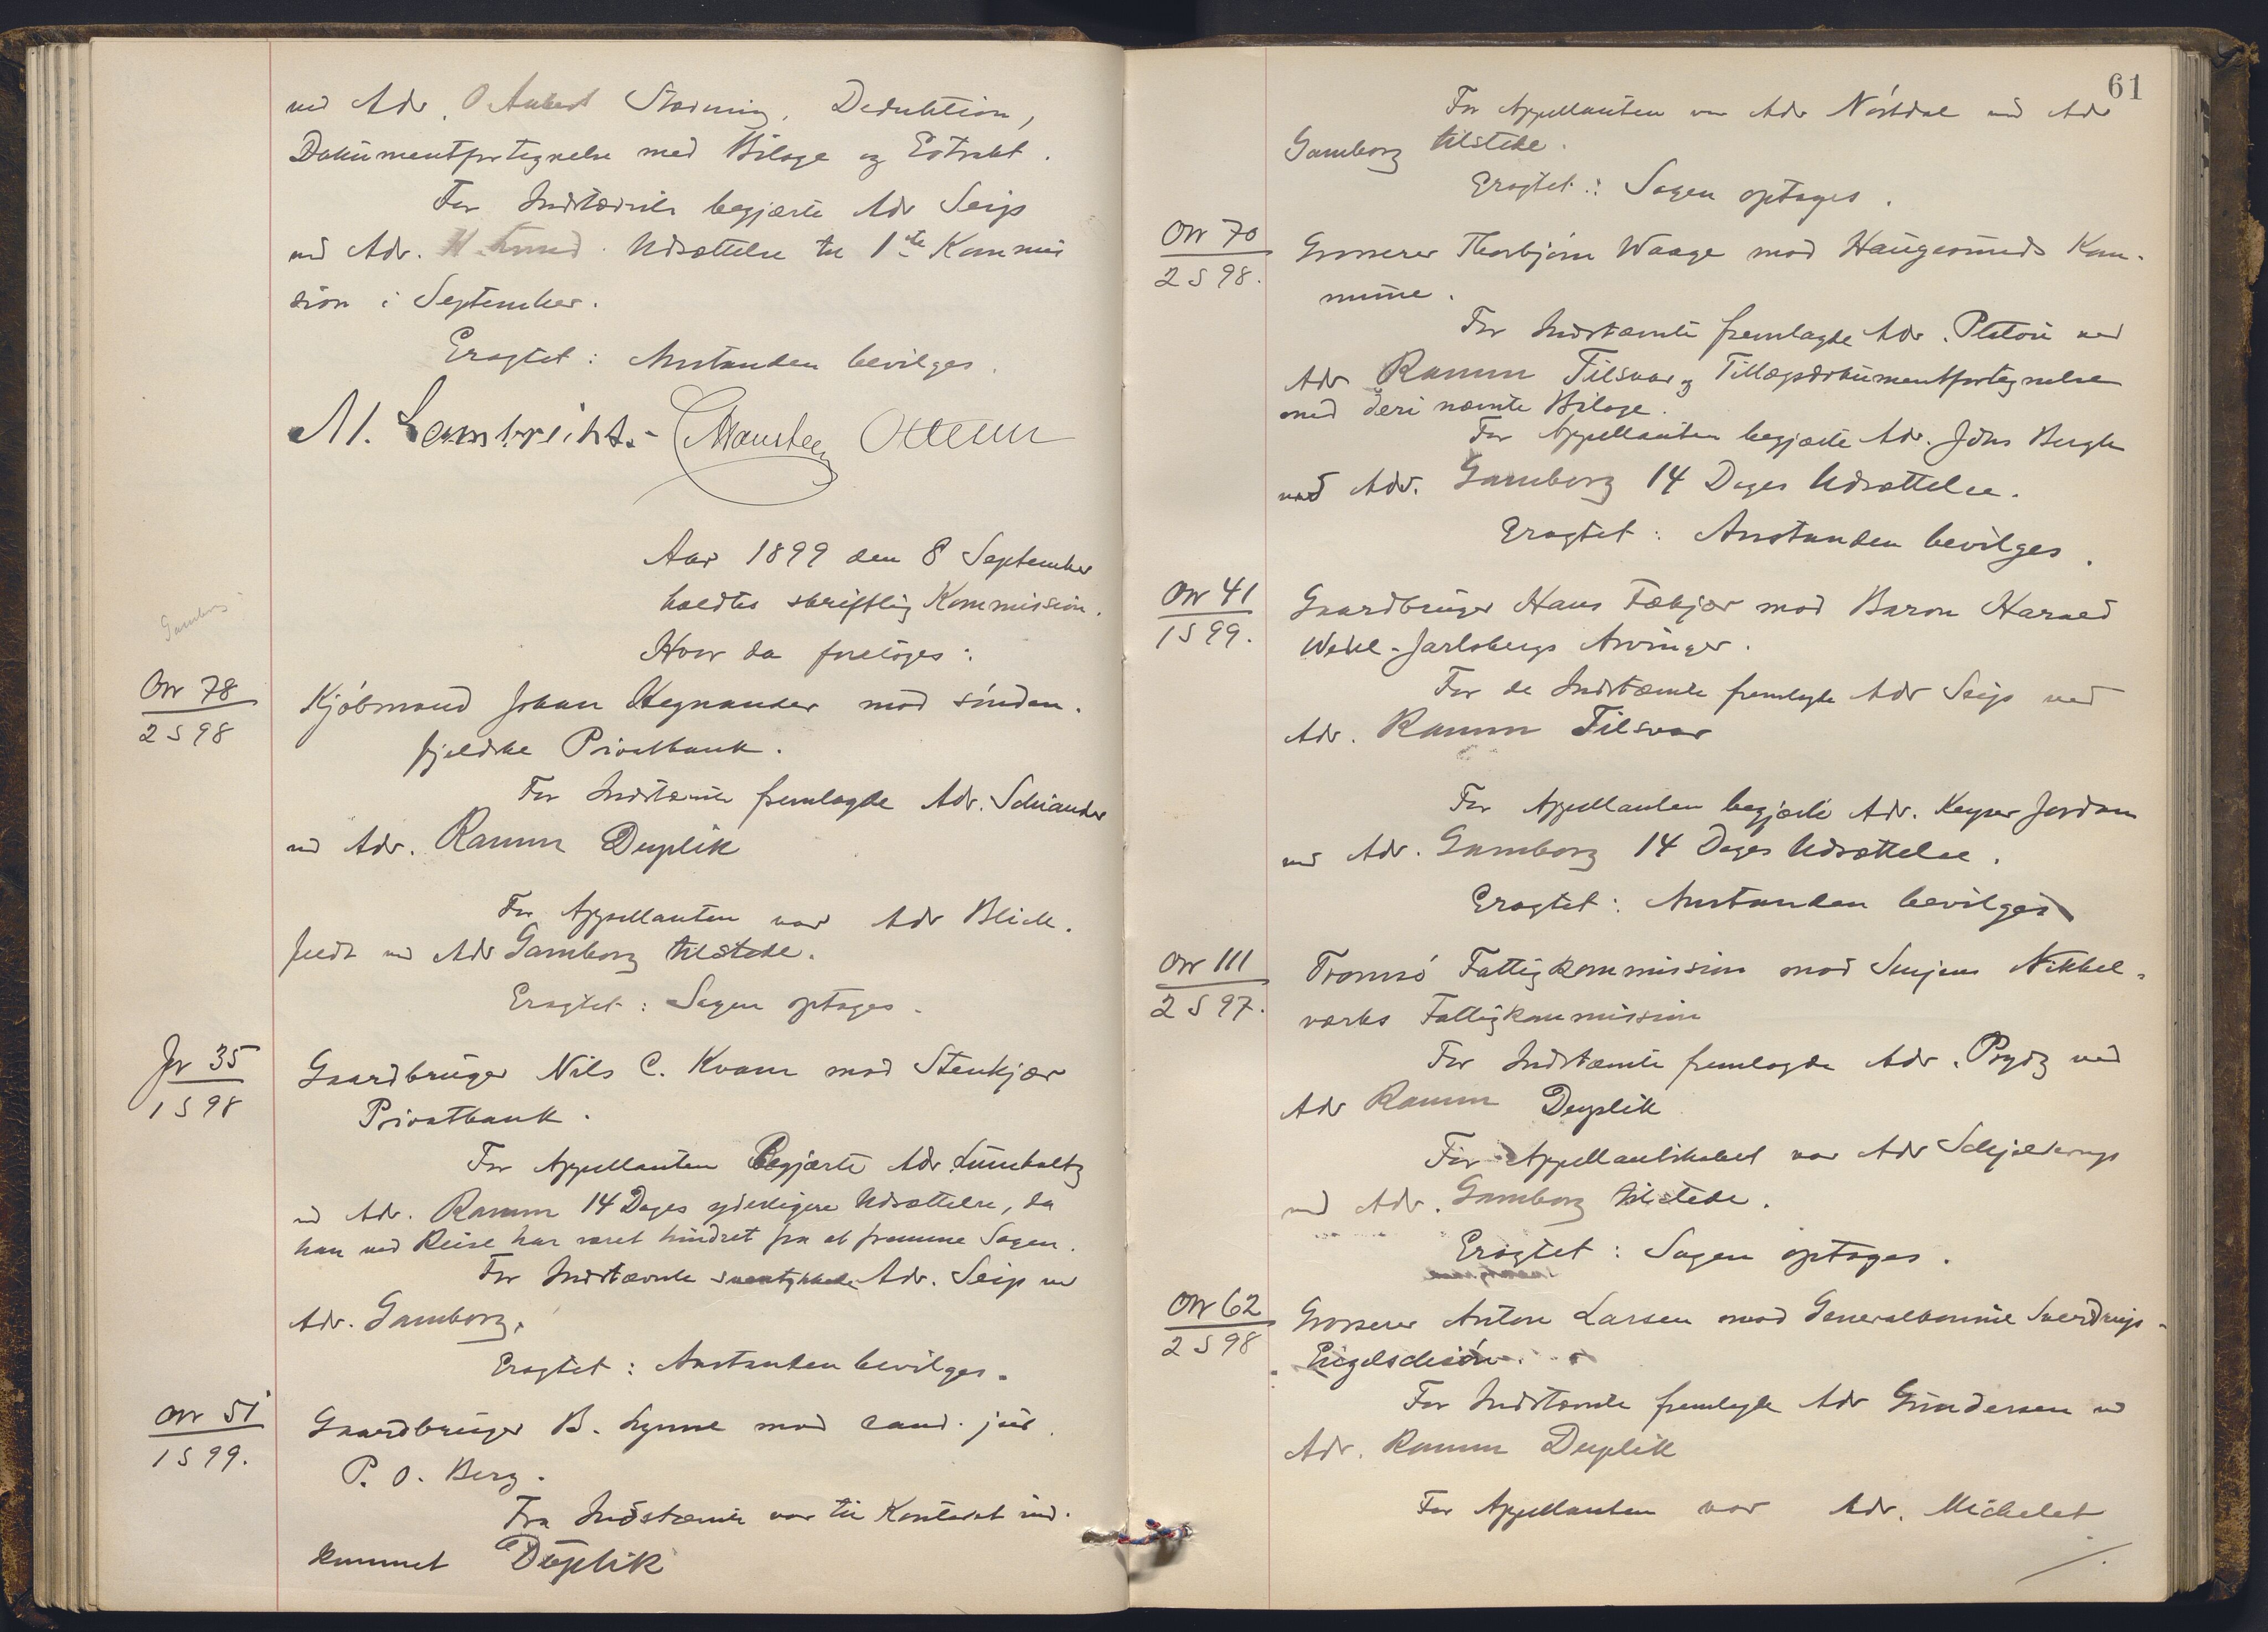 ved Adv. O Aubert Stævning, Deduktion,
Dokumentfortegnelse med Bilage og Extrakt.
For Indstævnte begjærte Adv Seip
ved Adv. Udsættelse til 1ste Kommis
sion i September.
Eragtet: Anstanden bevilges.
M. Lambrechts.
Aar 1899 den 8 September
holdtes skriftlig Kommission.
Hvor da foretoges:
Gamborg
OW 78
2 S 98
Kjöbmand Johan Hegnander mod sönden-
fjeldske Privatbank.
For Indstævnte fremlagde Adv. Schiander
ved Adv. Ramm Duplik
For Appellanten var Adv Blick-
feldt ved Adv Gamborg tilstede.
Eragtet: Sagen optages.
Jr 35
1 S 98
Gaardbruger Nils C. Kvam mod Stenkjær
Privatbank.
For Appellanten begjærte Adv. Lumholtz
ved Adv. Ramm 14 Dages yderligere Udsættelse, da
han ved Reise har været hindret fra at fremme Sagen.
For Indstævnte samtykkede Adv. Seip ved
Adv. Gamborg.
Eragtet: Anstanden bevilges.
OW 51
1 S 99.
Gaardbruger B. Lynne mod cand. jur.
P. O. Berg.
Fra Indstævnte var til Kontoret ind-
kommet Duplik
61
For Appellanten var Adv Nörtdal ved Adv
Gamborg tilstede.
Eragtet: Sagen optages.
OW 70
2 S 98.
Grosserer Thorbjörn Waage mod Haugesunds Kom-
mune.
For Indstævnte fremlagde Adv. Platou ved
Adv Ramm Tilsvar og Tillægsdokumentfortegnelse
med deri nævnte Bilage.
For Appellanten begjærte Adv. Johs Bergh
ved Adv. Gamborg 14 Dages Udsættelse.
Eragtet: Anstanden bevilges.
OW 41
1 S 99.
Gaardbruger Hans Fækjær mod Baron Harald
Wedel-Jarlsbergs Arvinger.
For de Indstævnte fremlagde Adv Seip ved
Adv. Ramm Tilsvar
For Appellanten begjærte Adv. Keyser Jordan
ved Adv. Gamborg 14 Dages Udsættelse.
Eragtet: Anstanden bevilges
OW 111
2 S 97.
Tromsö Fattigkommission mod Senjens Nikkel-
værks Fattigkommission
For Indstævnte fremlagde Adv. Prydz ved
Adv Ramm Duplik
For Appellantskabet var Adv Schjelderup
ved Adv. Gamborg tilstede.
Eragtet: Sagen optages.
OW 62
2 S 98
Grosserer Anton Larsen mod Generalkonsul Sverdrup-
For Indstævnte fremlagde Adv Gundersen ved
Adv. Ramm Duplik
For Appellanten var Adv. Michelet